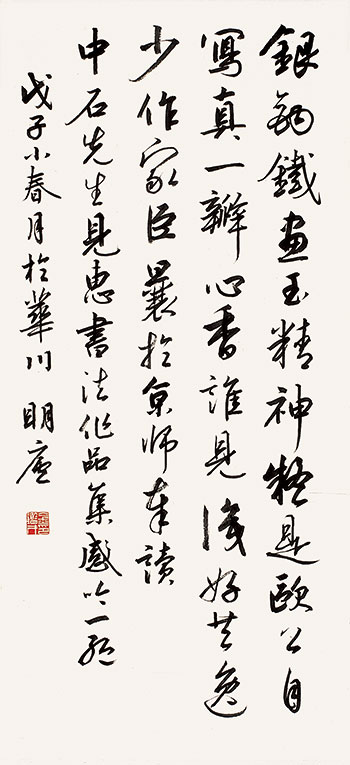 銀鉤鐵畫玉精神疑是歐公自
寫真一瓣心香誰見識好共逸
少作家臣曩於京師奉讀
中石先生見惠書法作品集感吟一絕
戊子小春月於華川 明廬